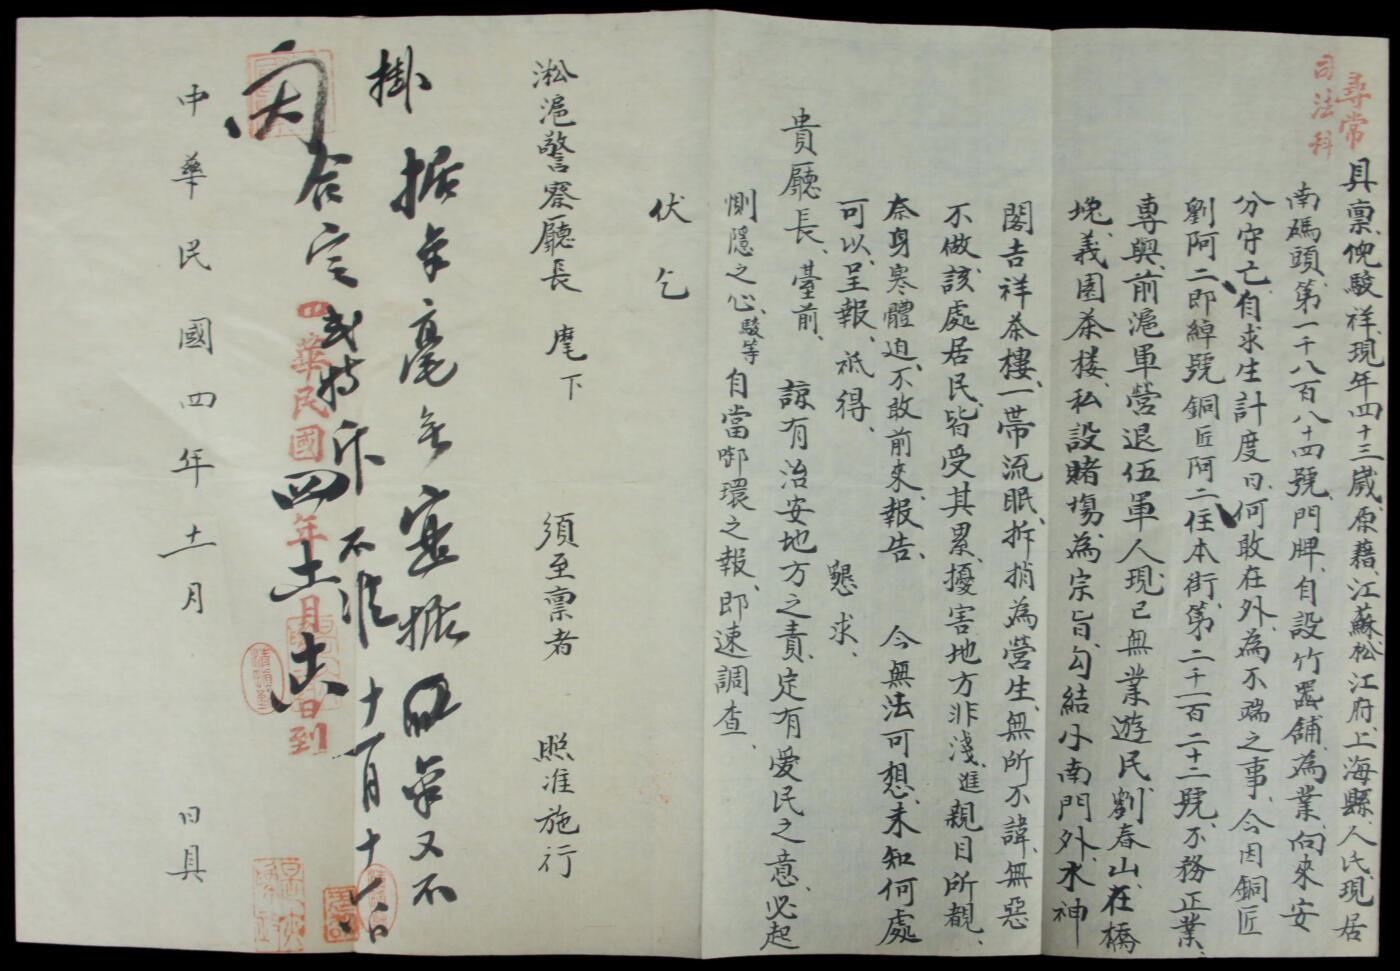 尋常
司法科
具稟倪駿祥、現年四十三歲、原藉江蘇松江府上海縣人氏、現居
南碼頭第一千八百八十四號門牌、自設竹器舖為業、向來安
分守亡、自求生計度日、何敢在外為不端之事、今因銅匠
劉阿二即綽號銅匠阿二、住本街第二千一百二十二號、不務正業、
專與前滬軍營退伍軍人現已無業遊民劉春山在橋
塊、義園茶楼、私設賭塲為宗旨、勾結小南門外水神
閣吉祥茶樓一帶流眠拆捎為營生、無所不諱、無惡
不做、該處居民皆受其累、擾害地方非淺、進親目所覩、
奈身寒體迫、不敢前來報告、今無法可想、未知何處
可以呈報、祗得、懇求、
貴廳長、臺前、諒有治安地方之責、定有愛民之意、必起
惻隱之心、駿等自當啣環之報、即速調查、
伏乞
淞滬警察廳長 麾下 須至稟者 照准施行
掛
据稟毫無實據 稟又不
合定式特斥不准 十一月十七日
四年十一月
中華民國 年 月 日到
中華民國四年十一月 日具